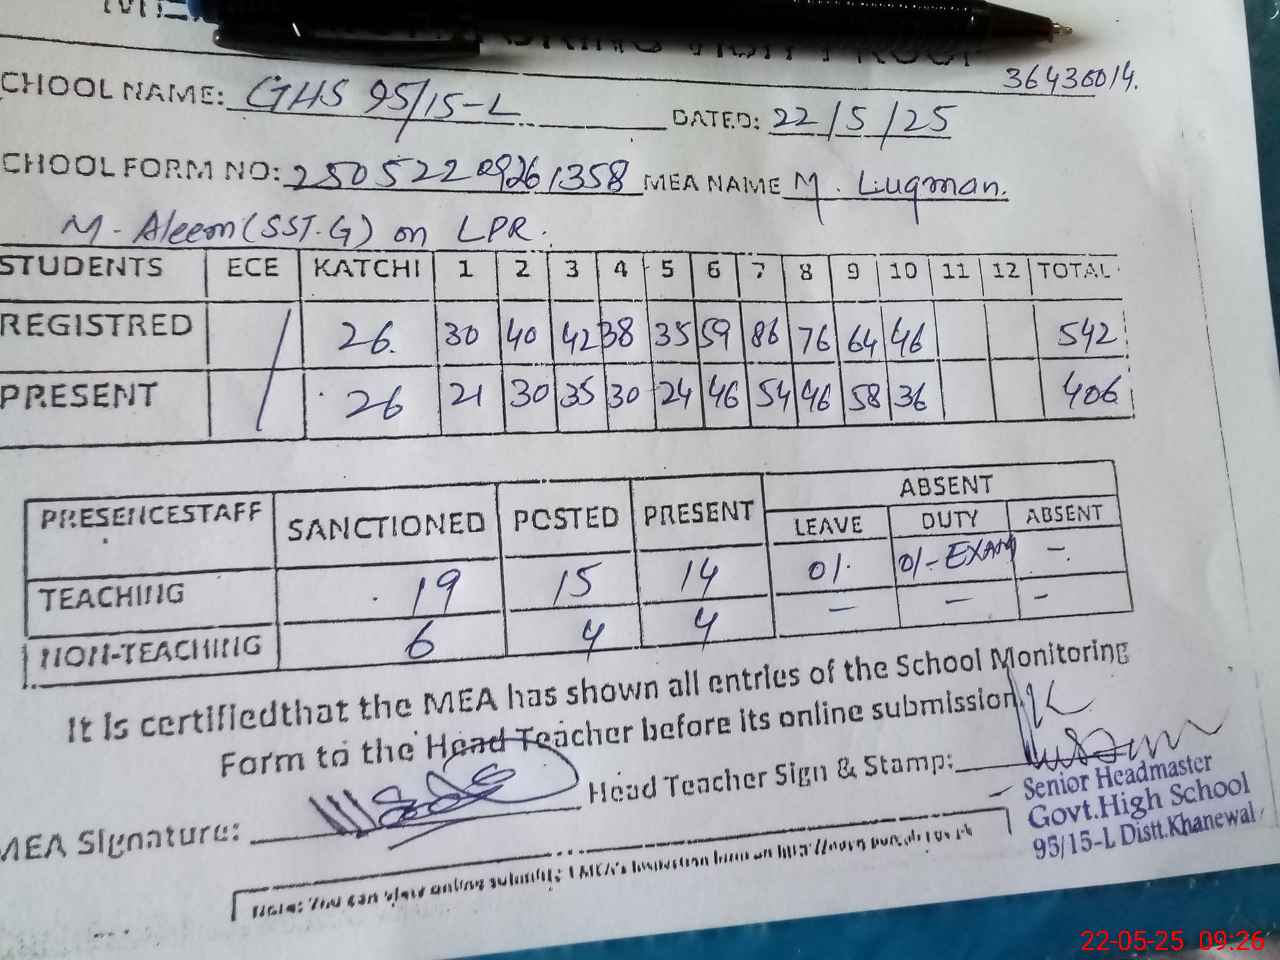 36430014.
CHOOL NAME: GHS 95/15-L DATED: 22/5/25
CHOOL FORM NO: 25052209261358 MEA NAME M. Luqman.
M. Aleem (SST.G) on LPR.
STUDENTS ECE KATCHI 1 2 3 4 5 6 7 8 9 10 11 12 TOTAL
REGISTRED / 26. 30 40 42 38 35 59 86 76 64 46 542
PRESENT / 26 21 30 35 30 24 46 54 46 58 36 406
PRESENCESTAFF SANCTIONED POSTED PRESENT ABSENT
LEAVE DUTY ABSENT
TEACHING 19 15 14 01. 01-EXAM -
NON-TEACHING 6 4 4 - - -
It is certifiedthat the MEA has shown all entries of the School Monitoring
Form to the Head Teacher before its online submission.
MEA Signature: Head Teacher Sign & Stamp:
Senior Headmaster
Govt.High School
95/15-L Distt.Khanewal
Note: You can view online submitted
22-05-25 09:26